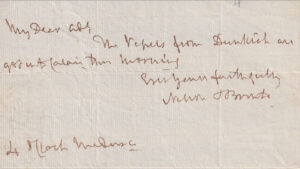 My Dear Adl
The Vessels from Dunkirk are
gone into Calais this morning
Ever yours faithfully
Nelson & Bronte
4 o'Clock Medusa